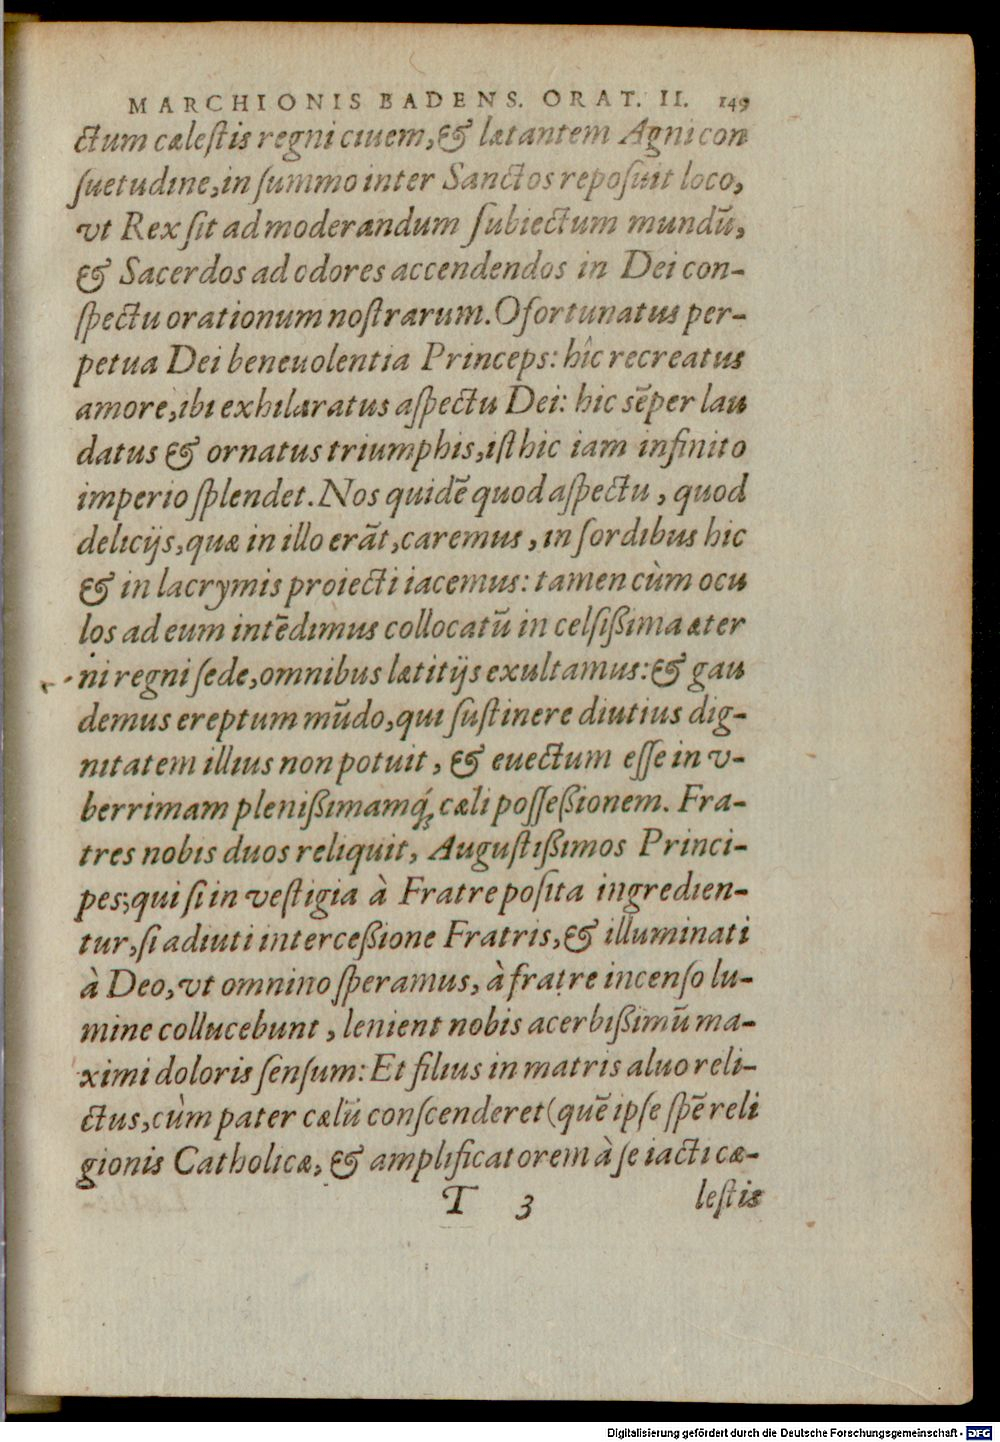 MARCHIONIS BADENS. ORAT. II. 149
ctum cælestis regni ciuem, & lætantem Agni con
suetudine, in summo inter Sanctos reposuit loco,
vt Rex sit ad moderandum subiectum mundũ,
& Sacerdos ad odores accendendos in Dei con-
spectu orationum nostrarum. O fortunatus per-
petua Dei beneuolentia Princeps: hîc recreatus
amore, ibi exhilaratus aspectu Dei: hic sẽper lau
datus & ornatus triumphis, isthic iam infinito
imperio splendet. Nos quidẽ quod aspectu, quod
delicijs, quæ in illo erãt, caremus, in sordibus hic
& in lacrymis proiecti iacemus: tamen cùm ocu
los ad eum intẽdimus collocatũ in celsißima æter
ni regni sede, omnibus lætitijs exultamus: & gau
demus ereptum mũdo, qui sustinere diutius dig-
nitatem illius non potuit, & euectum esse in v-
berrimam plenißimamq́; cæli posseßionem. Fra-
tres nobis duos reliquit, Augustißimos Princi-
pes; qui si in vestigia à Fratre posita ingredien-
tur, si adiuti interceßione Fratris, & illuminati
à Deo, vt omnino speramus, à fratre incenso lu-
mine collucebunt, lenient nobis acerbißimũ ma-
ximi doloris sensum: Et filius in matris aluo reli-
ctus, cùm pater cælũ conscenderet (quẽ ipse spẽ reli
gionis Catholicæ, & amplificatorem à se iacti cæ-
T 3 lestis
Digitalisierung gefördert durch die Deutsche Forschungsgemeinschaft - DFG